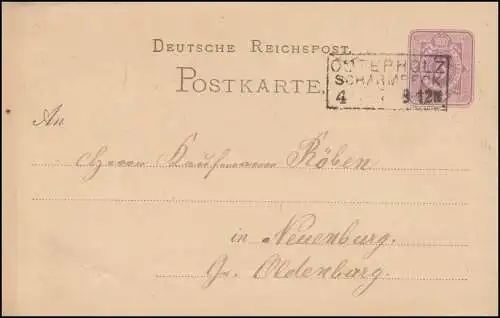 DEUTSCHE REICHSPOST.
POSTKARTE.
OSTERHOLZ
SCHARMBECK
4 8-12V
An
Herrn Kaufmann Röben
in Neuenburg.
Gr. Oldenburg.